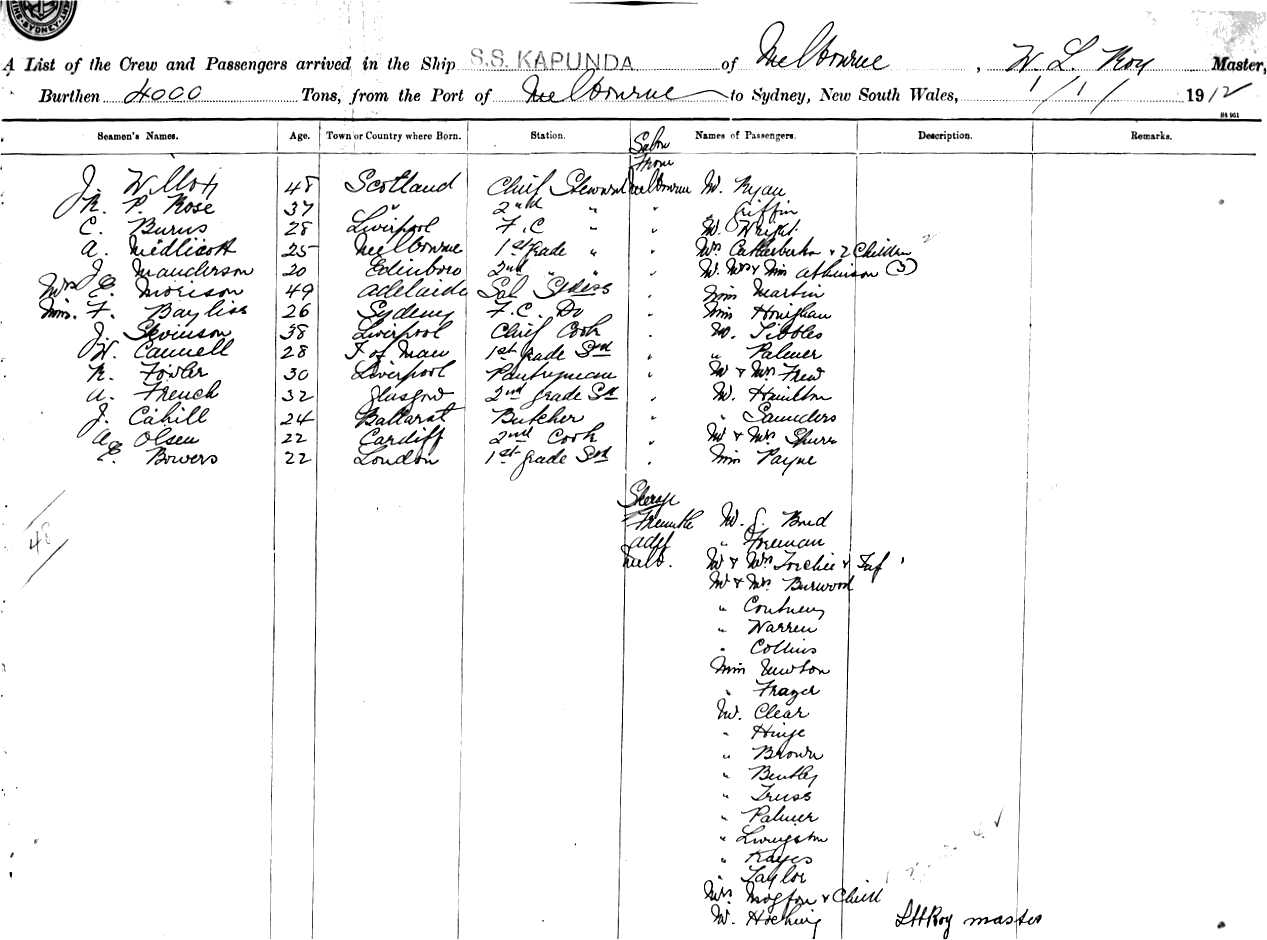 SYDNEY
A List of the Crew and Passengers arrived in the Ship S.S. KAPUNDA of Melbourne, W. L Roy Master,
Burthen 4000 Tons, from the Port of Melbourne to Sydney, New South Wales, 1/1/ 1912
Seamen's Names. Age. Town or Country where Born. Station. Names of Passengers. Description. Remarks.
Salon
From
J. 48 Scotland Chief Steward Melbourne Mr. Ryan
R. P. Rose 37 " 2nd " " " Griffin
C. Burns 28 Liverpool F.C " " Mr. Wright
A. Medlicott 25 Melbourne 1st grade " " Mrs & 2 Children
J. Manderson 20 Edinboro 2nd " " " Mr. Mrs & Miss Atkinson (3)
Mrs E. Morison 49 Adelaide Sal Stdess " Miss Martin
Miss. F. Bayliss 26 Sydney F.C. Do " Miss
J. 38 Liverpool Chief Cook " Mr. Tibbles
W. Cannell 28 I of Man 1st grade Srd " " Palmer
R. Fowler 30 Liverpool Pantryman " Mr & Mrs Frew
A. French 32 Glasgow 2nd grade " Mr. Hamilton
J. Cahill 24 Ballarat Butcher " " Saunders
A. Olsen 22 Cardiff 2nd Cook " Mr & Mrs
E. Bowers 22 London 1st grade Srd " Miss Payne
48
Mr. J.
" Freeman
Melb. Mr & Mrs &
Mr & Mrs Burwood
" Courtney
" Warren
" Collins
Miss Newton
" Frazer
Mr. Clear
" Hinge
" Brown
" Bentley
" Truss
" Palmer
" Livingston
" Hayes
" Taylor
Mrs & Child
Mr. Hocking master